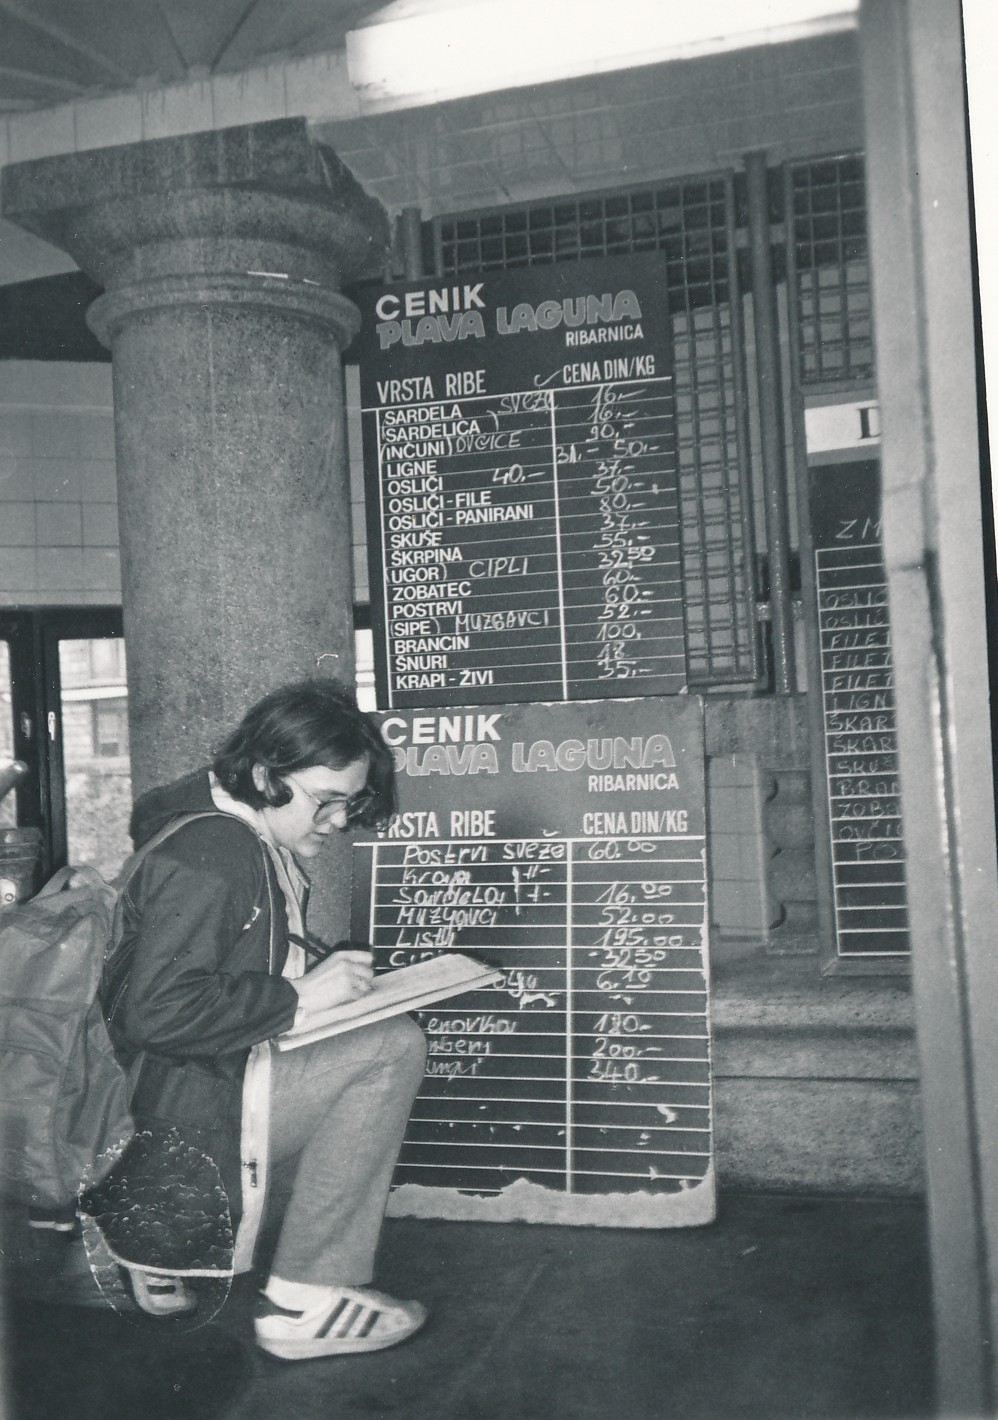 CENIK
PLAVA LAGUNA
RIBARNICA
VRSTA RIBE CENA DIN/KG
SARDELA SVEŽE 16.-
SARDELICA 16.-
(INČUNI) OVČICE 90.-
LIGNE 31.- 50.-
OSLIČI 40.- 37.-
OSLIČI-FILE 50.-
OSLIČI-PANIRANI 80.-
SKUŠE 37.-
ŠKRPINA 55.-
(UGOR) CIPLI 32.50
ZOBATEC 60.-
POSTRVI 60.-
(SIPE) MUZGAVCI 52.-
BRANCIN 100.
ŠNURI 18.-
KRAPI-ŽIVI 35.-
CENIK
PLAVA LAGUNA
RIBARNICA
VRSTA RIBE CENA DIN/KG
Postrvi sveže 60.00
Krapa -||-
Sardela -||- 16.00
Muzgavci 52.00
Listi 195.00
32.50
6.10
120.-
200.-
340.-
ZM
OSLIČ
OSLIČ
FILET
FILET
FILET
LIGN
ŠKAR
ŠKAR
SKUŠ
BRAN
ZOBA
OVČIC
PO